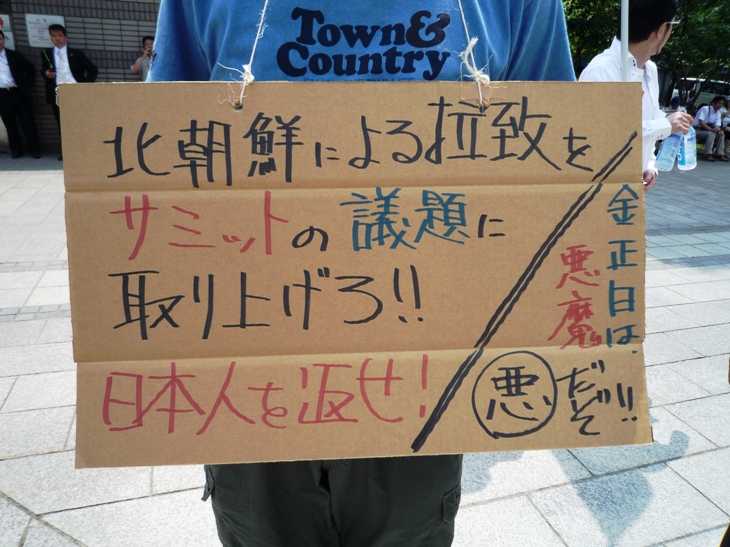 Town&
Country
北朝鮮による拉致を
サミットの議題に
取り上げろ!!
日本人を返せ!
金正日は、
悪魔
悪だぞ!!